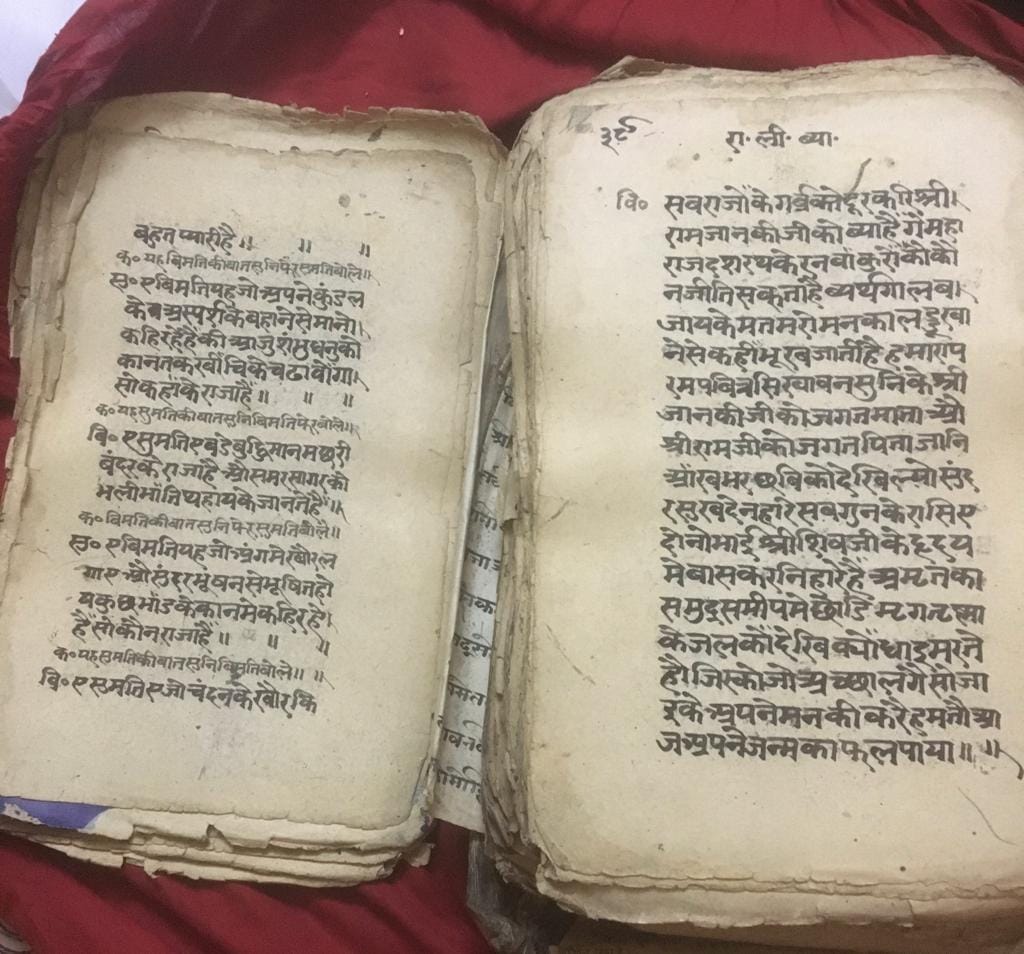 बहुत प्यारी है॥ ॥ ॥
क॰ यह बिमति की बात सुनि फेर सुमति बोले॥
सु॰ ए बिमति यह जो अपने कुंडल
के स्पर्श के बहाने से मानो
कहि रहे हैं की आजु शंभु धनु को
कान तक खींचि के चढावोंगा।
सो कहां के राजा हैं॥ ॥ ॥
क॰ यह सुमति की बात सुनि बिमति फेर बोले॥
बि॰ ए सुमति ए बडे बुद्धिमान मछरी
बंदर के राजा है औ समर सागर को
भली भांति थहाय के जानते हैं॥
क॰ बिमति की बात सुनि फेर सुमति बोले॥
सु॰ ए बिमति यह जो अंग मे खौर ल
गाए औ सुंदर भूषन से भूषित हो
य कुछ भांड के कान मे कहि रहे
हैं सो कौन राजा हैं॥ ॥ ॥
क॰ यह सुमति की बात सुनि बिमति बोले॥ ॥
बि॰ ए सुमति ए जो चंदन के खौर कि
३८ रा॰ ली॰ व्या॰
बि॰ सब राजों के गर्व को दूर करि श्री
राम जानकी जी को ब्याहैंगे महा
राज दशरथ के रन बांकुरों को को
न जीति सकता है व्यर्थ गाल ब
जाय के मत मरो मन का लड्डू खा
ने से कहीं भूख जाती है हमारा प
रम पवित्र सिखावन सुनि के श्री
जानकी जी को जगत माता औ
श्री राम जी को जगत पिता जानि
आंख भर छबि को देखि ल्यो सुंद
र सुख देनहारे सब गुन के रासि ए
दोनो भाई श्री शिव जी के हृदय
मे बास करनिहारे हैं अमृत का
समुद्र समीप मे छोडि मृगतृष्णा
के जल कों देखि क्यों धाइ मरते
हौ जिस्को जो अच्छा लगै सो जा
इ के अपने मन की करै हम तौ आ
ज अपने जन्म का फल पाया॥ ॥